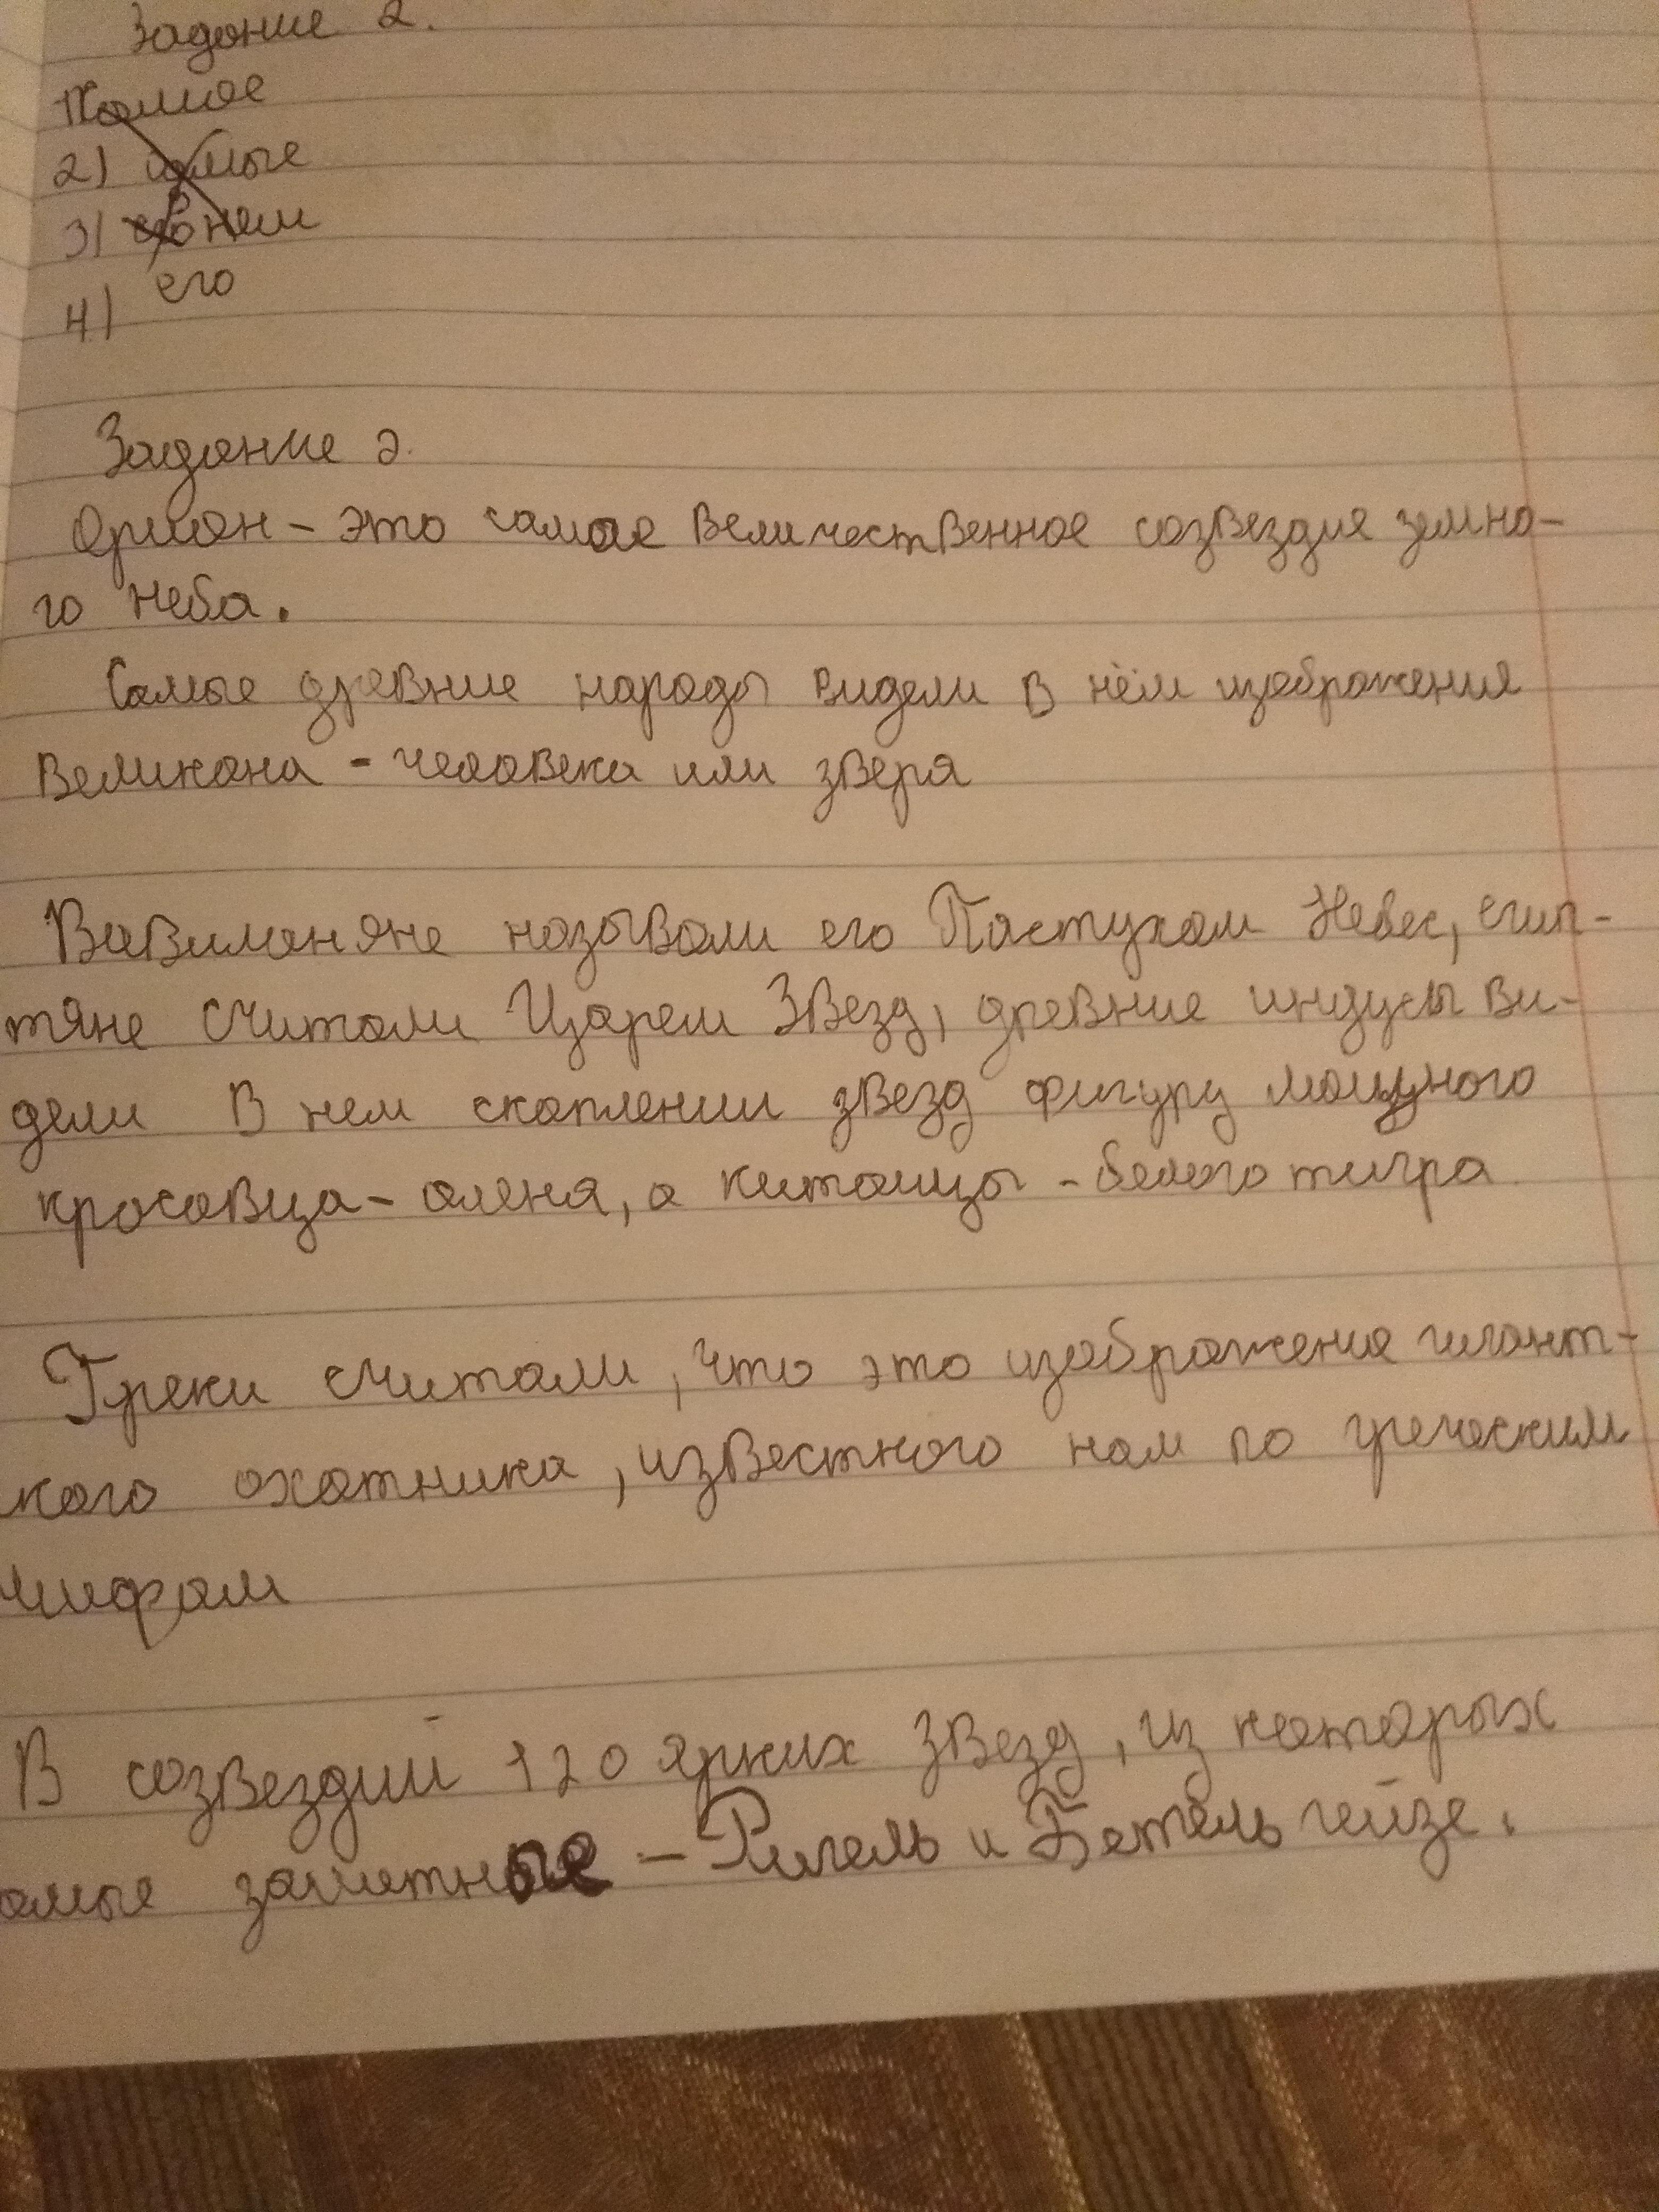 Задание 2.
2) самые
3) в нем
4) его
Задание 2.
Орион – это самое величественное созвездие земно-
го неба.
Самые древние народы видели в нём изображения
великана - человека или зверя
Вавилоняне называли его Пастухом Небес, егип-
тяне считали Царем Звезд, древние индусы ви-
дели в нем скоплении звезд фигуру мощного
красавца – оленя, а китаицы - белого тигра
Греки считали, что это изображение гигант-
кого охотника, известного нам по греческим
мифам
В созвездий 120 ярких звезд, из которых
амые заметные – Ригель и Бетельгейзе.